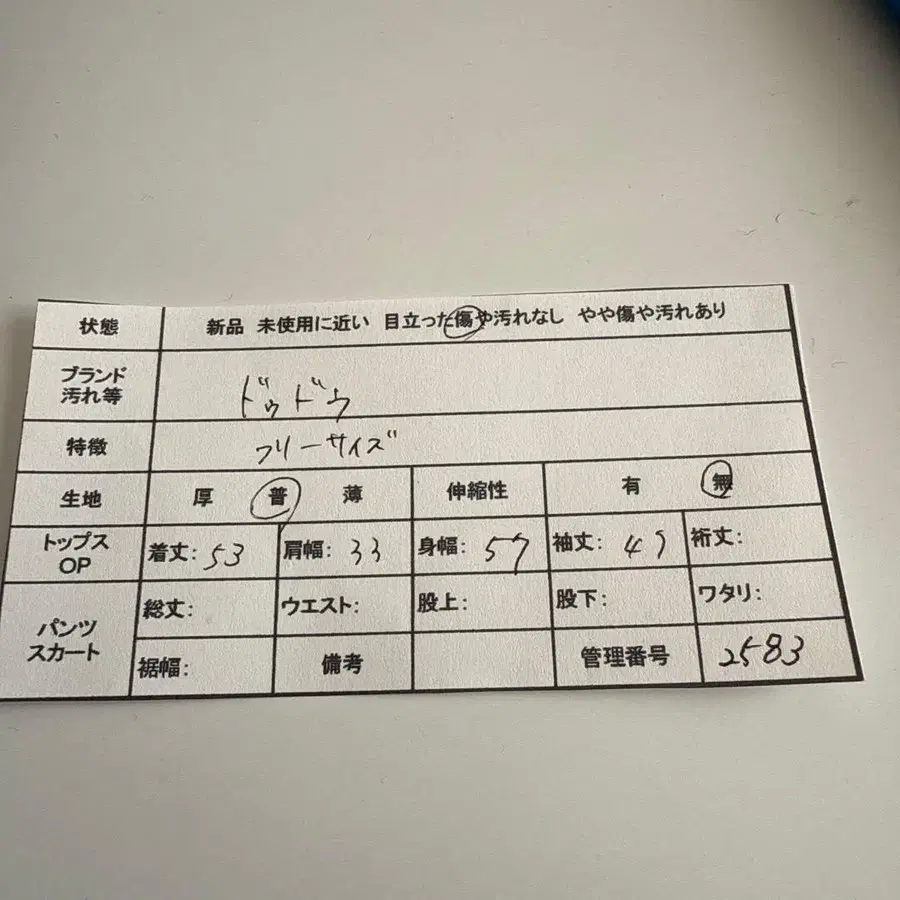 状態 新品 未使用に近い 目立った傷や汚れなし やや傷や汚れあり
ブランド
汚れ等 ドゥドウ
特徴 フリーサイズ
生地 厚 普 薄 伸縮性 有 無
トップス
OP 着丈: 53 肩幅: 33 身幅: 57 袖丈: 49 裄丈:
パンツ
スカート 総丈: ウエスト: 股上: 股下: ワタリ:
裾幅: 備考 管理番号 2583